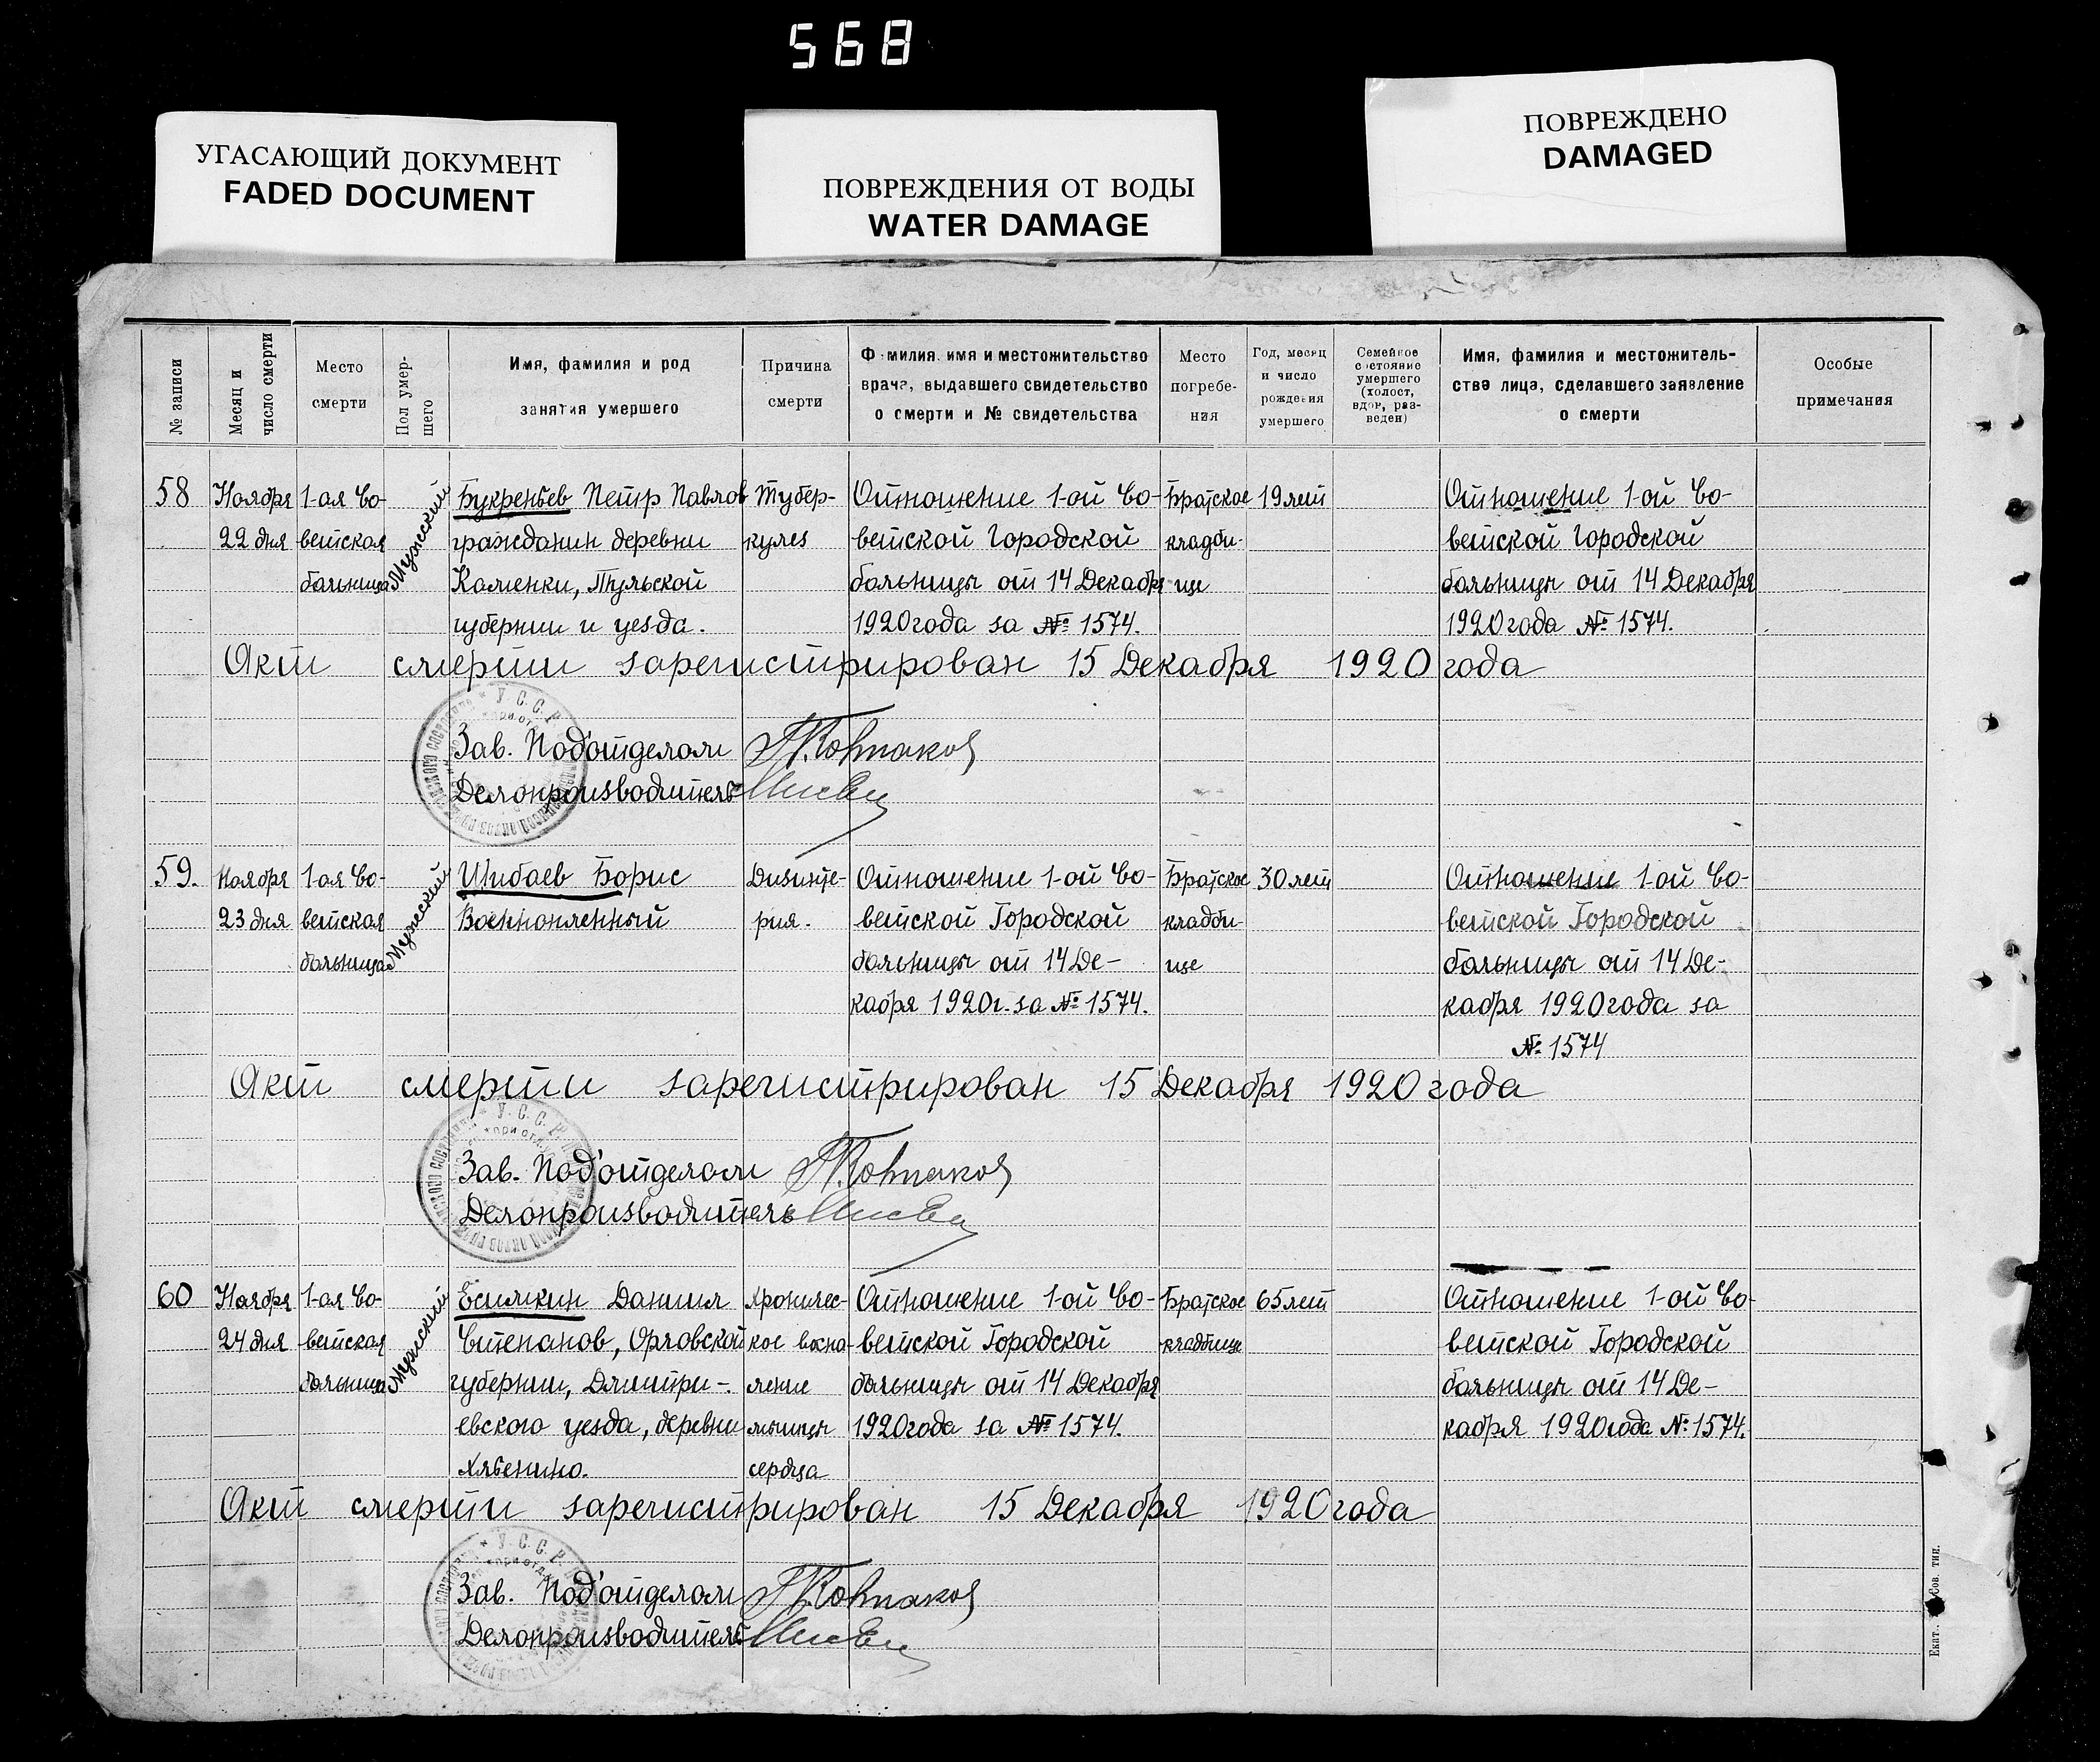 568
УГАСАЮЩИЙ ДОКУМЕНТ
FADED DOCUMENT
ПОВРЕЖДЕНИЯ ОТ ВОДЫ
WATER DAMAGE
ПОВРЕЖДЕНО
DAMAGED
№ записи
Месяц и
число смерти
Место
смерти
Пол умер-
шего
Имя, фамилия и род
занятия умершего
Причина
смерти
Фамилия, имя и местожительство
врача, выдавшего свидетельство
о смерти и № свидетельства
Место
погребе-
ния
Год, месяц
и число
рождения
умершего
Семейное
состояние
умершего
(холост,
вдов, раз-
веден)
Имя, фамилия и местожитель-
ство лица, сделавшего заявление
о смерти
Особые
примечания
58
Ноября
22 дня
1-ая Со-
ветская
больница
Мужской
Букреньев Петр Павлов
гражданин деревни
Каменки, Тульской
губернии и уезда.
Тубер-
кулез
Отношение 1-ой Со-
ветской Городской
больницы от 14 Декабря
1920 года за № 1574.
Братское
кладби-
ще
19 лет
Отношение 1-ой Со-
ветской Городской
больницы от 14 Декабря
1920 года № 1574.
Акт смерти зарегистрирован 15 Декабря 1920 года
У.С.С.Р.
Зав. Под'отделом
Делопроизводитель
59.
Ноября
23 дня
1-ая Со-
ветская
больница
Мужской
Шибаев Борис
Военнопленный
Дизинте-
рия.
Отношение 1-ой Со-
ветской Городской
больницы от 14 Де-
кабря 1920 г. за № 1574.
Братское
кладби-
ще
30 лет
Отношение 1-ой Со-
ветской Городской
больницы от 14 Де-
кабря 1920 года за
№ 1574
Акт смерти зарегистрирован 15 Декабря 1920 года
У.С.С.Р.
Зав. Под'отделом
Делопроизводитель
60
Ноября
24 дня
1-ая Со-
ветская
больница
Мужской
Есиякин Даниил
Степанов, Орловской
губернии, Дмитри-
евского уезда, деревни
Хроничес-
кое воспа-
ление
мышцы
сердца
Отношение 1-ой Со-
ветской Городской
больницы от 14 Декабря
1920 года за № 1574.
Братское
кладбище
65 лет
Отношение 1-ой Со-
ветской Городской
больницы от 14 Де-
кабря 1920 года № 1574.
Акт смерти зарегистрирован 15 Декабря 1920 года
У.С.С.Р.
Зав. Под'отделом
Делопроизводитель
Екат., Сов. тип.